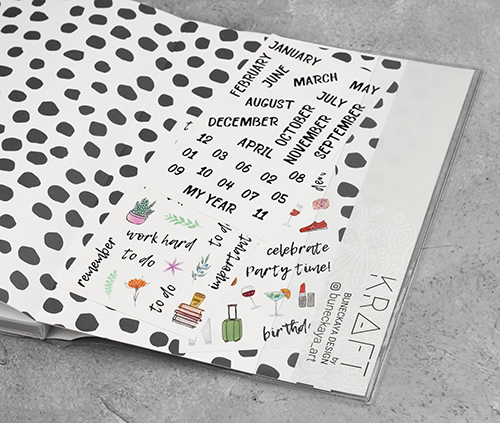 JANUARY
FEBRUARY
JUNE
MARCH
MAY
AUGUST
JULY
DECEMBER
OCTOBER
NOVEMBER
SEPTEMBER
12
APRIL
01 03 06 02 08
09 10 04 07 05
MY YEAR 11
remember
work hard
to do
to do
to d
important
celebrate
Party time!
birthd
KRAFT
by
BUNECKAYA DESIGN
buneckaya_art